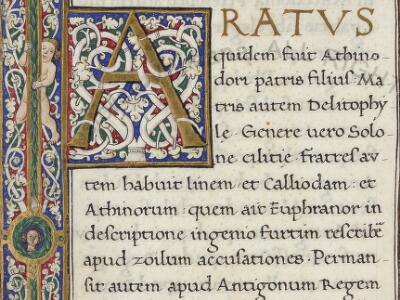 ARATUS
quidem fuit Athino
dori patris filius Ma
tris autem Delitophy
le · Genere uero Solo
ne cilitie fratres au
tem habuit linem · et Calliodam · et
Athinorum · quem ait Euphranor in
descriptione ingenio furtim rescribẽ
apud zoilum accusationes · Perman
sit autem apud Antigonum Regem